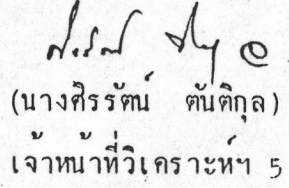 (นางศิรรัตน์ ตันติกุล)
เจ้าหน้าที่วิเคราะห์ฯ 5